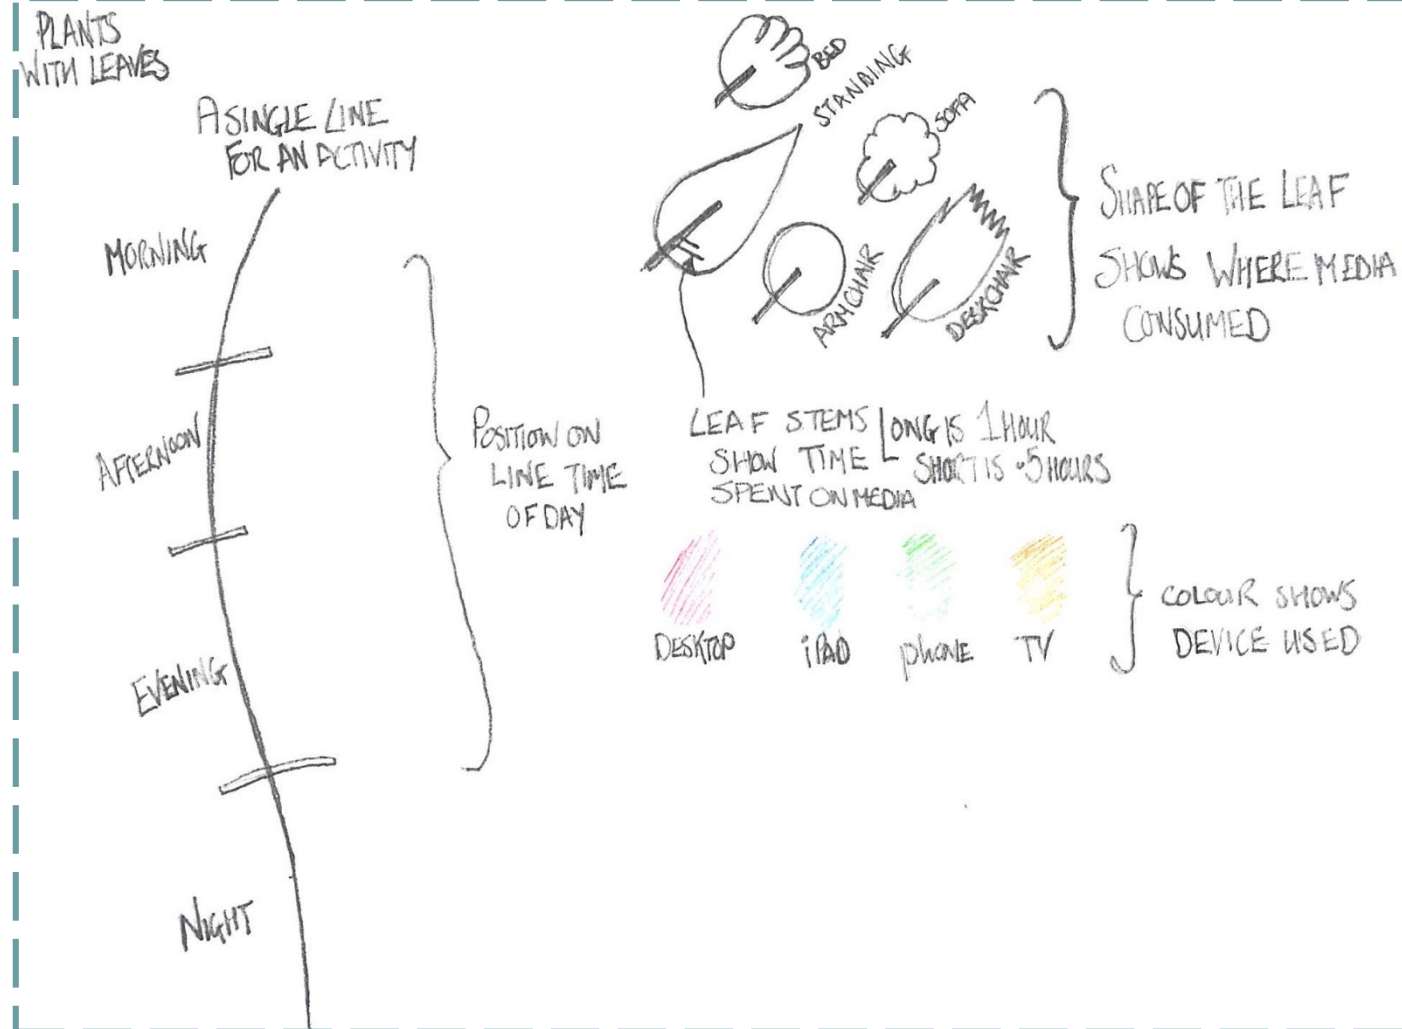 PLANTS
WITH LEAVES
A SINGLE LINE
FOR AN ACTIVITY
MORNING
AFTERNOON
EVENING
NIGHT
POSITION ON
LINE TIME
OF DAY
BED
STANDING
SOFA
ARMCHAIR
DESKCHAIR
SHAPE OF THE LEAF
SHOWS WHERE MEDIA
CONSUMED
LEAF STEMS
SHOW TIME
SPENT ON MEDIA
LONG IS 1 HOUR
SHORT IS .5 HOURS
DESKTOP
iPAD
phONE
TV
COLOUR SHOWS
DEVICE USED